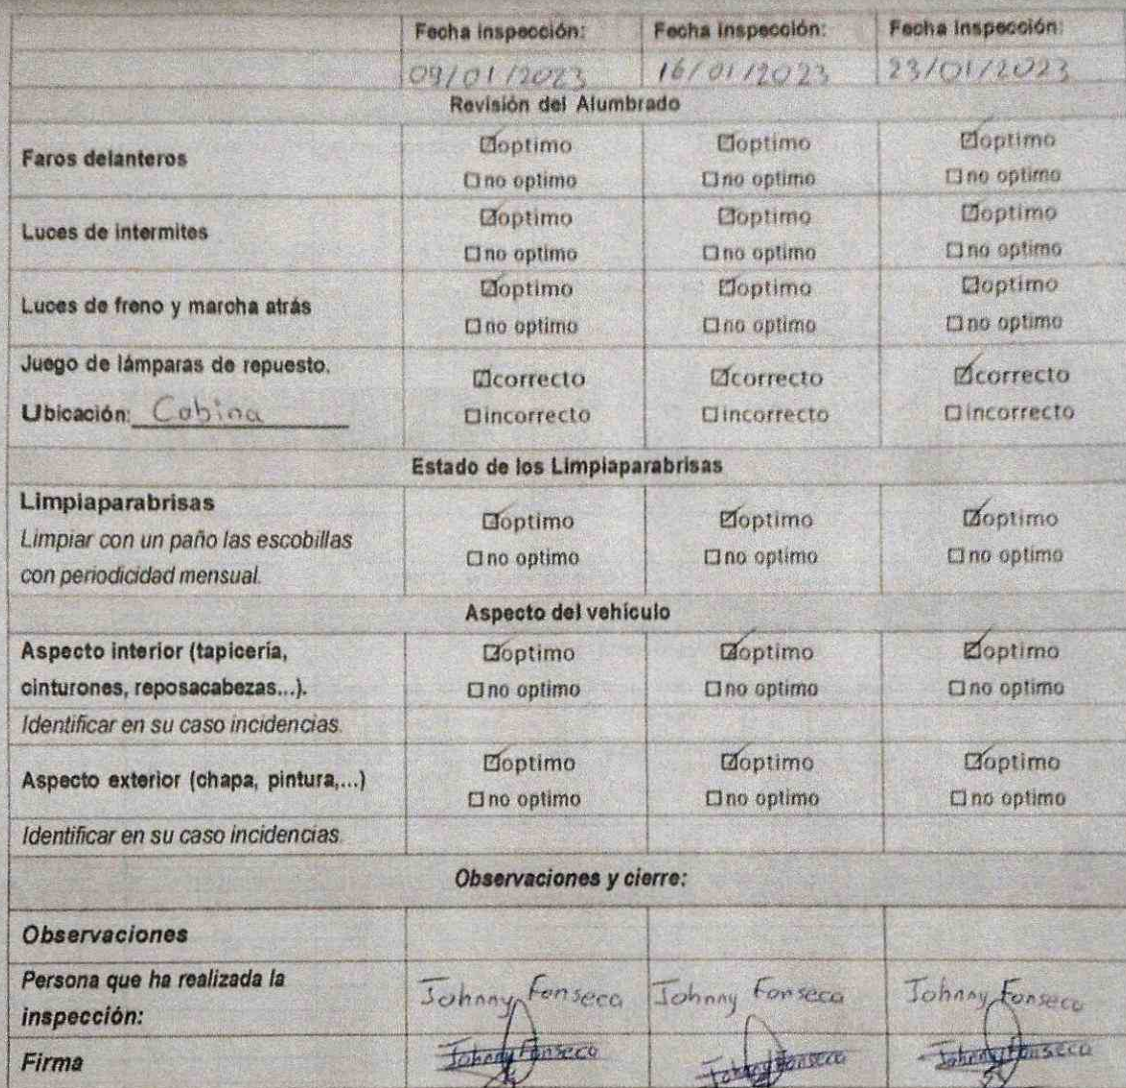 Fecha inspección: Fecha inspección: Fecha inspección:
09/01/2023 16/01/2023 23/01/2023
Revisión del Alumbrado
Faros delanteros
☑optimo ☑optimo ☑optimo
☐no optimo ☐no optimo ☐no optimo
Luces de intermites
☑optimo ☑optimo ☑optimo
☐no optimo ☐no optimo ☐no optimo
Luces de freno y marcha atrás
☑optimo ☑optimo ☑optimo
☐no optimo ☐no optimo ☐no optimo
Juego de lámparas de repuesto.
Ubicación: Cabina
☑correcto ☑correcto ☑correcto
☐incorrecto ☐incorrecto ☐incorrecto
Estado de los Limpiaparabrisas
Limpiaparabrisas
Limpiar con un paño las escobillas
con periodicidad mensual.
☑optimo ☑optimo ☑optimo
☐no optimo ☐no optimo ☐no optimo
Aspecto del vehículo
Aspecto interior (tapicería,
cinturones, reposacabezas...).
☑optimo ☑optimo ☑optimo
☐no optimo ☐no optimo ☐no optimo
Identificar en su caso incidencias.
Aspecto exterior (chapa, pintura,...)
☑optimo ☑optimo ☑optimo
☐no optimo ☐no optimo ☐no optimo
Identificar en su caso incidencias.
Observaciones y cierre:
Observaciones
Persona que ha realizada la
inspección:
Johnny Fonseca Johnny Fonseca Johnny Fonseca
Firma
Johnny Fonseca Johnny Fonseca Johnny Fonseca